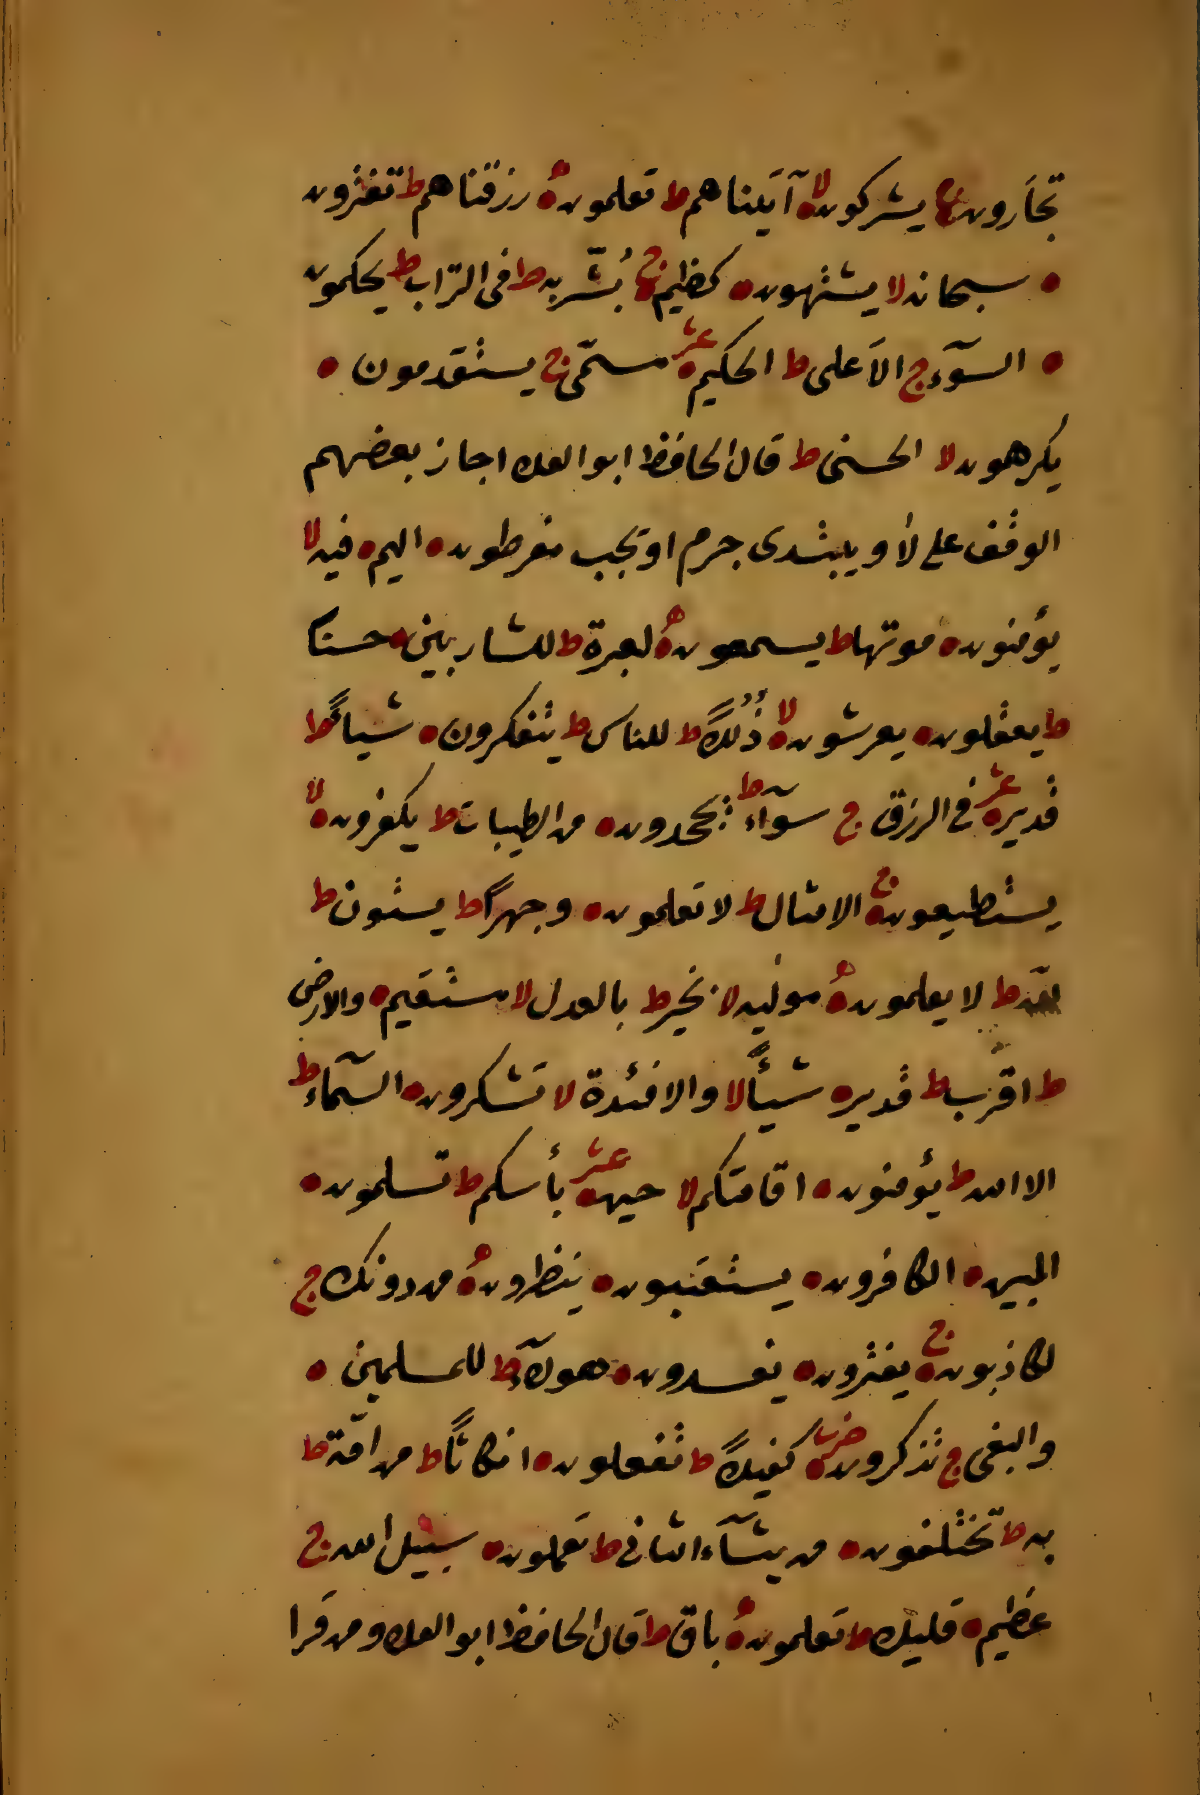 تجأرون ه ج يشركون ه لا آتيناهم ط تعلمون ه رزقناهم ط تفترون
ه سبحانه لا يشتهون ه كظيم ه ج بُشّر به ط فى التراب ط يحكمون
ه السوٓء ج الاَعلى ط الحكيم ه عشر مسمّى ج يستقدمون ه
يكرهون لا الحسنى ط قال الحافظ ابو العلا اجاز بعضهم
الوقف على لا ويبتدى جرم اوتجب مفرطون ه اليم ه فيه لا
يؤمنون ه موتها ط يسمعون ه لعبرة ط للشاربين ه حسنا
ط يعقلون ه يعرشون ه لا ذُلُلاً ط للناس ط يتفكرون ه شيأً ط
قدير ه عشر فى الرزق ج سوآءٌ ط يجحدون ه من الطيبات ط يكفرون ه لا
يستطيعون ه ج الامثال ط لا تعلمون ه وجهراً ط يستون ط
لله ط لا يعلمون ه موليه لا بخير ط بالعدل لا مستقيم ه والارض
ط اقرب ط قدير ه شيـأً لا والافئدة لا تشكرون ه السّمآء ط
الا الله ط يؤمنون ه اقامتكم لا حين ه عشر بأسكم ط تسلمون ه
المبين ه الكافرون ه يستعتبون ه ينظرون ه من دونك ج
لكاذبون ه ج يفترون ه يفسدون ه هؤلآء ط للمسلمين ه
والبغى ج تذكرون ه كفيلاً ط تفعلون ه انكاثاً ط من امّة ط
به ط تختلفون ه من يشآء الثانى ط تعملون ه سبيل الله ج
عظيم ه قليلا ط تعلمون ه باق ط قال الحافظ ابو العلا ومن قرا